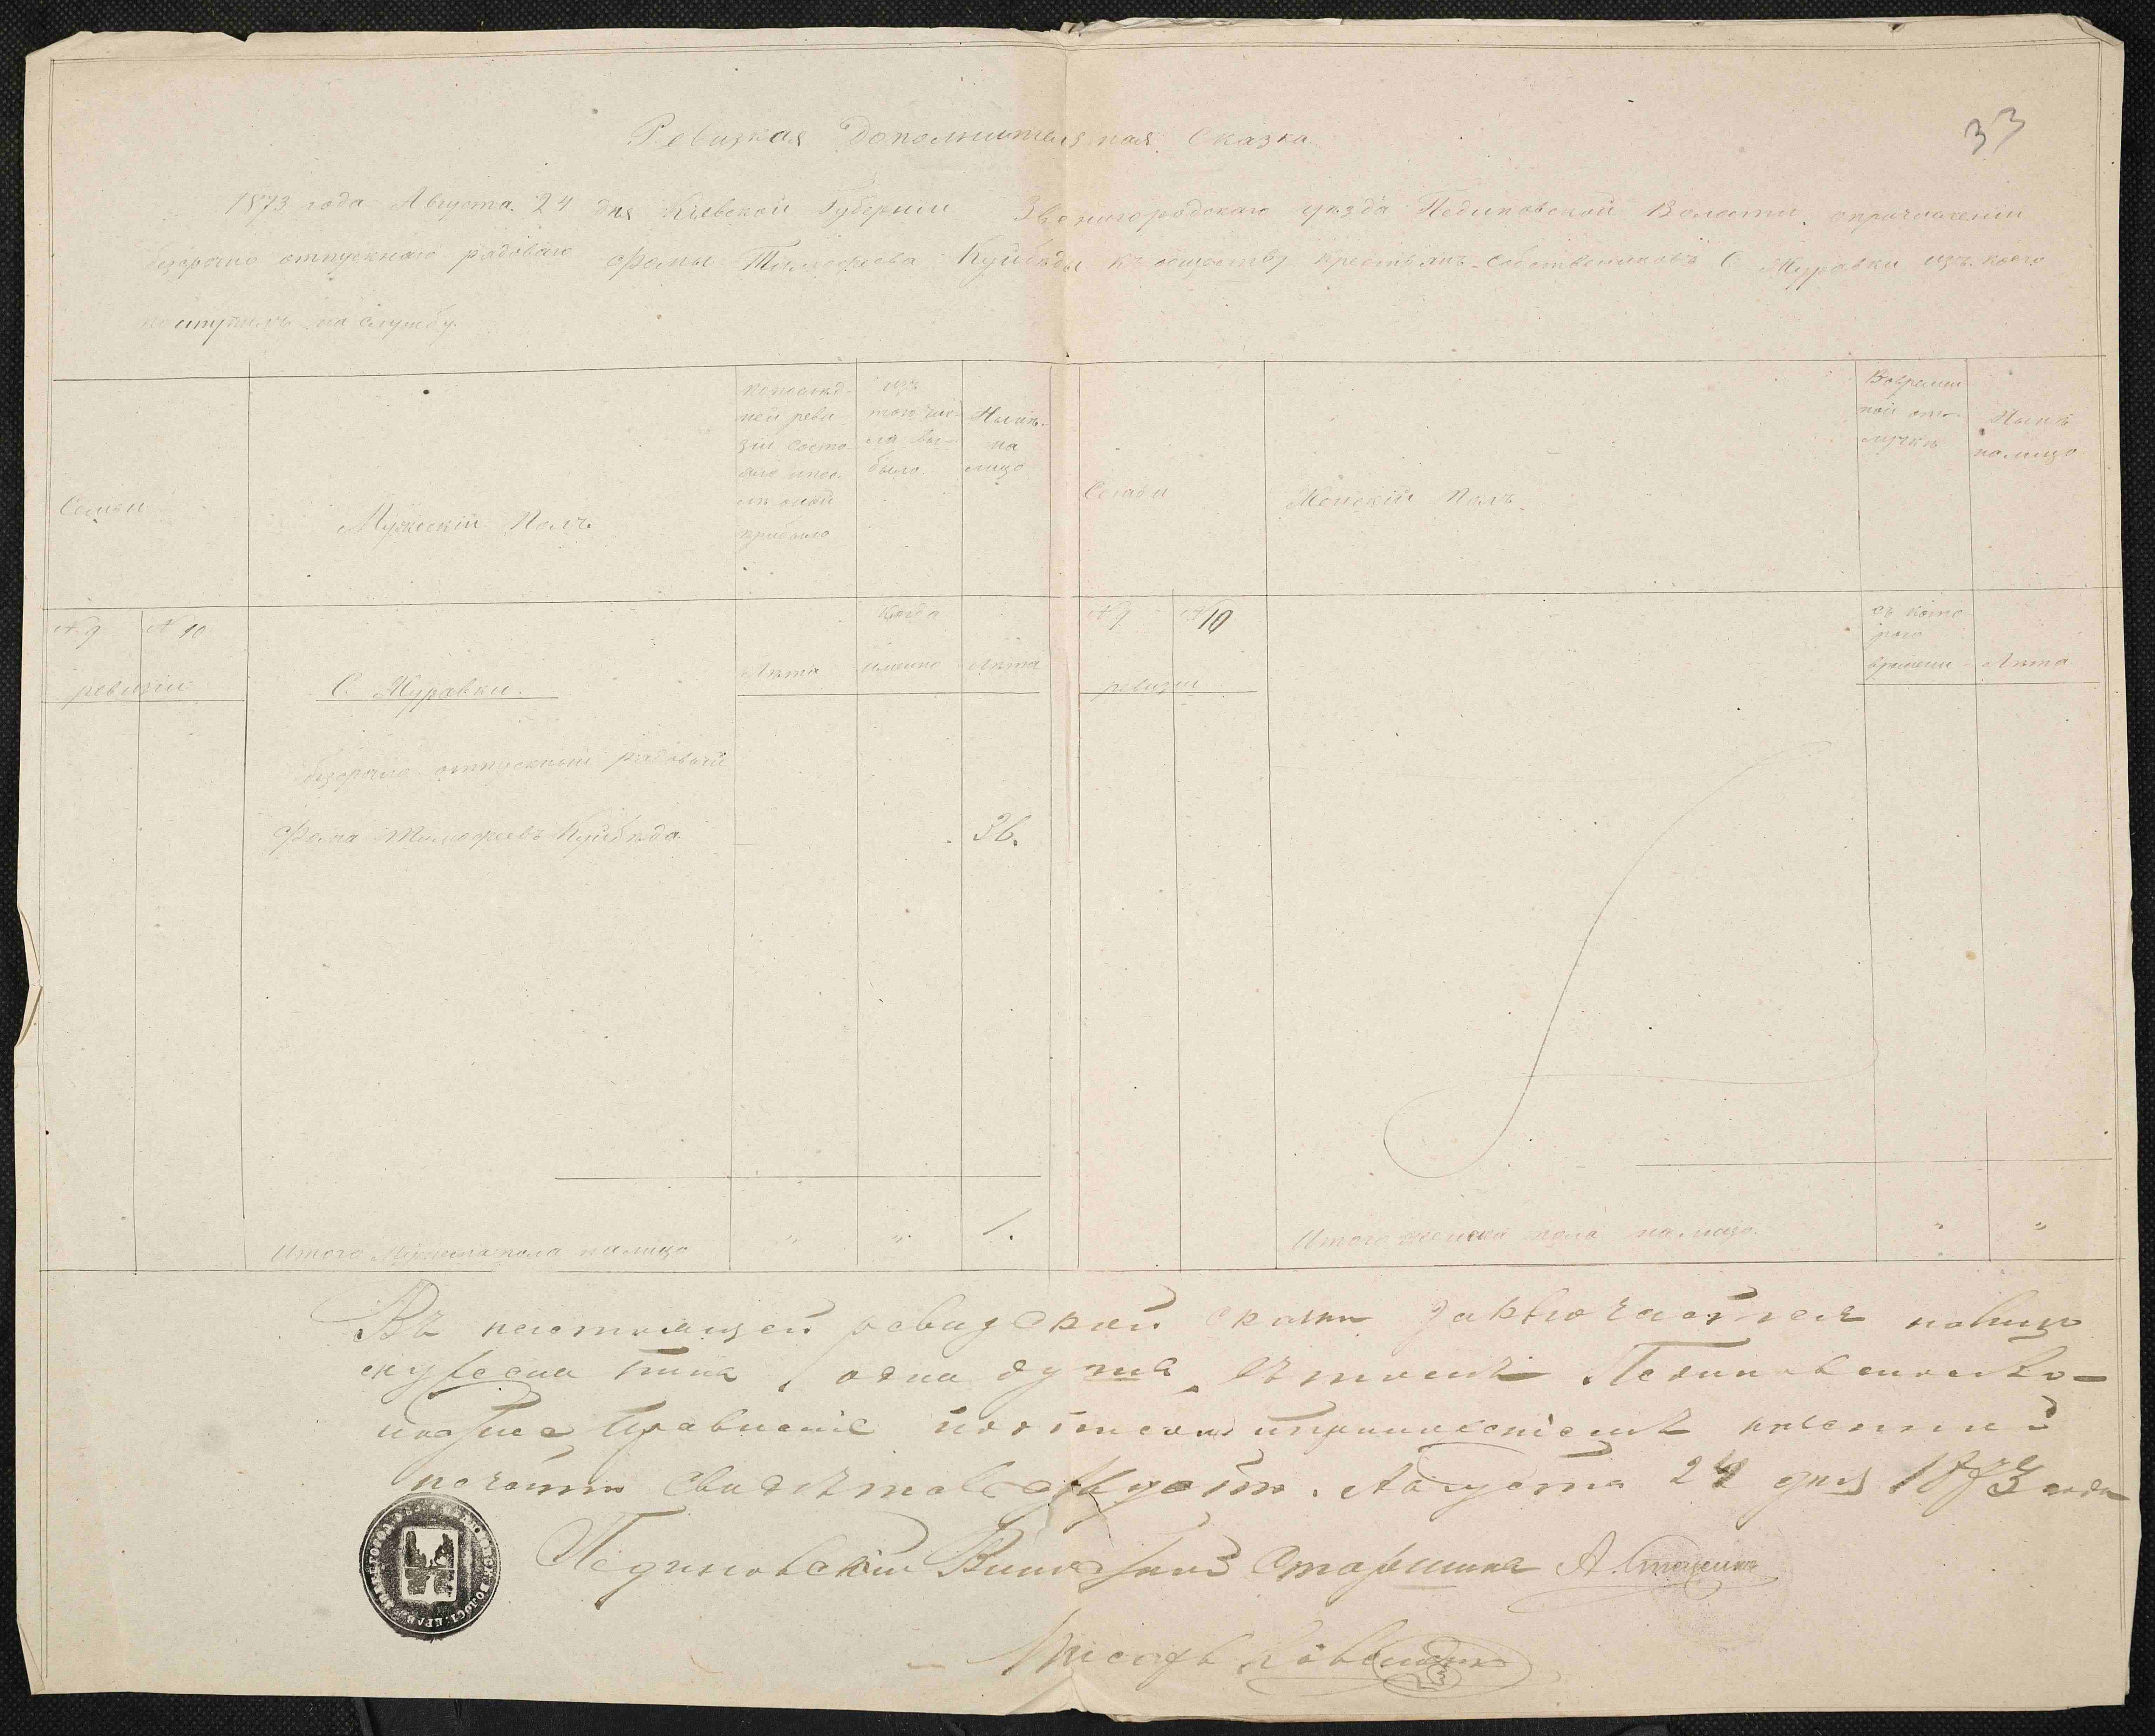 33
Ревизкая дополнительная Сказка
1873 года Августа 24 дня Кіевской Губерніи Звенигородскаго уѣзда Пединовской Волости, опричисленіи
безсрочно отпускнаго рядоваго Фомы Тимофеева Куйбѣды къ обществу крестьянъ-собственниковъ С. Журавки изъ коего
поступилъ на службу.
Семьи
Мужескій Полъ
попослѣд-
ней реви
зіи состо
яло ипос
лѣ оной
прибыло
изъ
того чис-
ла вы-
было.
Нынѣ
на
лицо
Семьи
Женскій Полъ
Вовремен
ной от-
лучкѣ
Нынѣ
налицо
№ 9 № 10
ревизіи
С. Журавки.
Лѣта
Когда
именно
Лѣта
№ 9 № 10
ревизіи
съ кото
рого
времени
Лѣта
безсрочно отпускный рядовый
Фома Тимофеевъ Куйбѣда
36.
Итого Мужска пола налицо " " 1.
Итого женска пола налицо " "
Въ настоящей ревизской сказки заключается налицо
мужеска пола 1 одна душа, въ томъ Пединовское Во-
лостное Правленіе подписомъ иприложеніемъ казенной
печати свидѣтельствуетъ. Августа 24 дня 1873 года
Пединовскій Волостной Старшина А.
Писарь